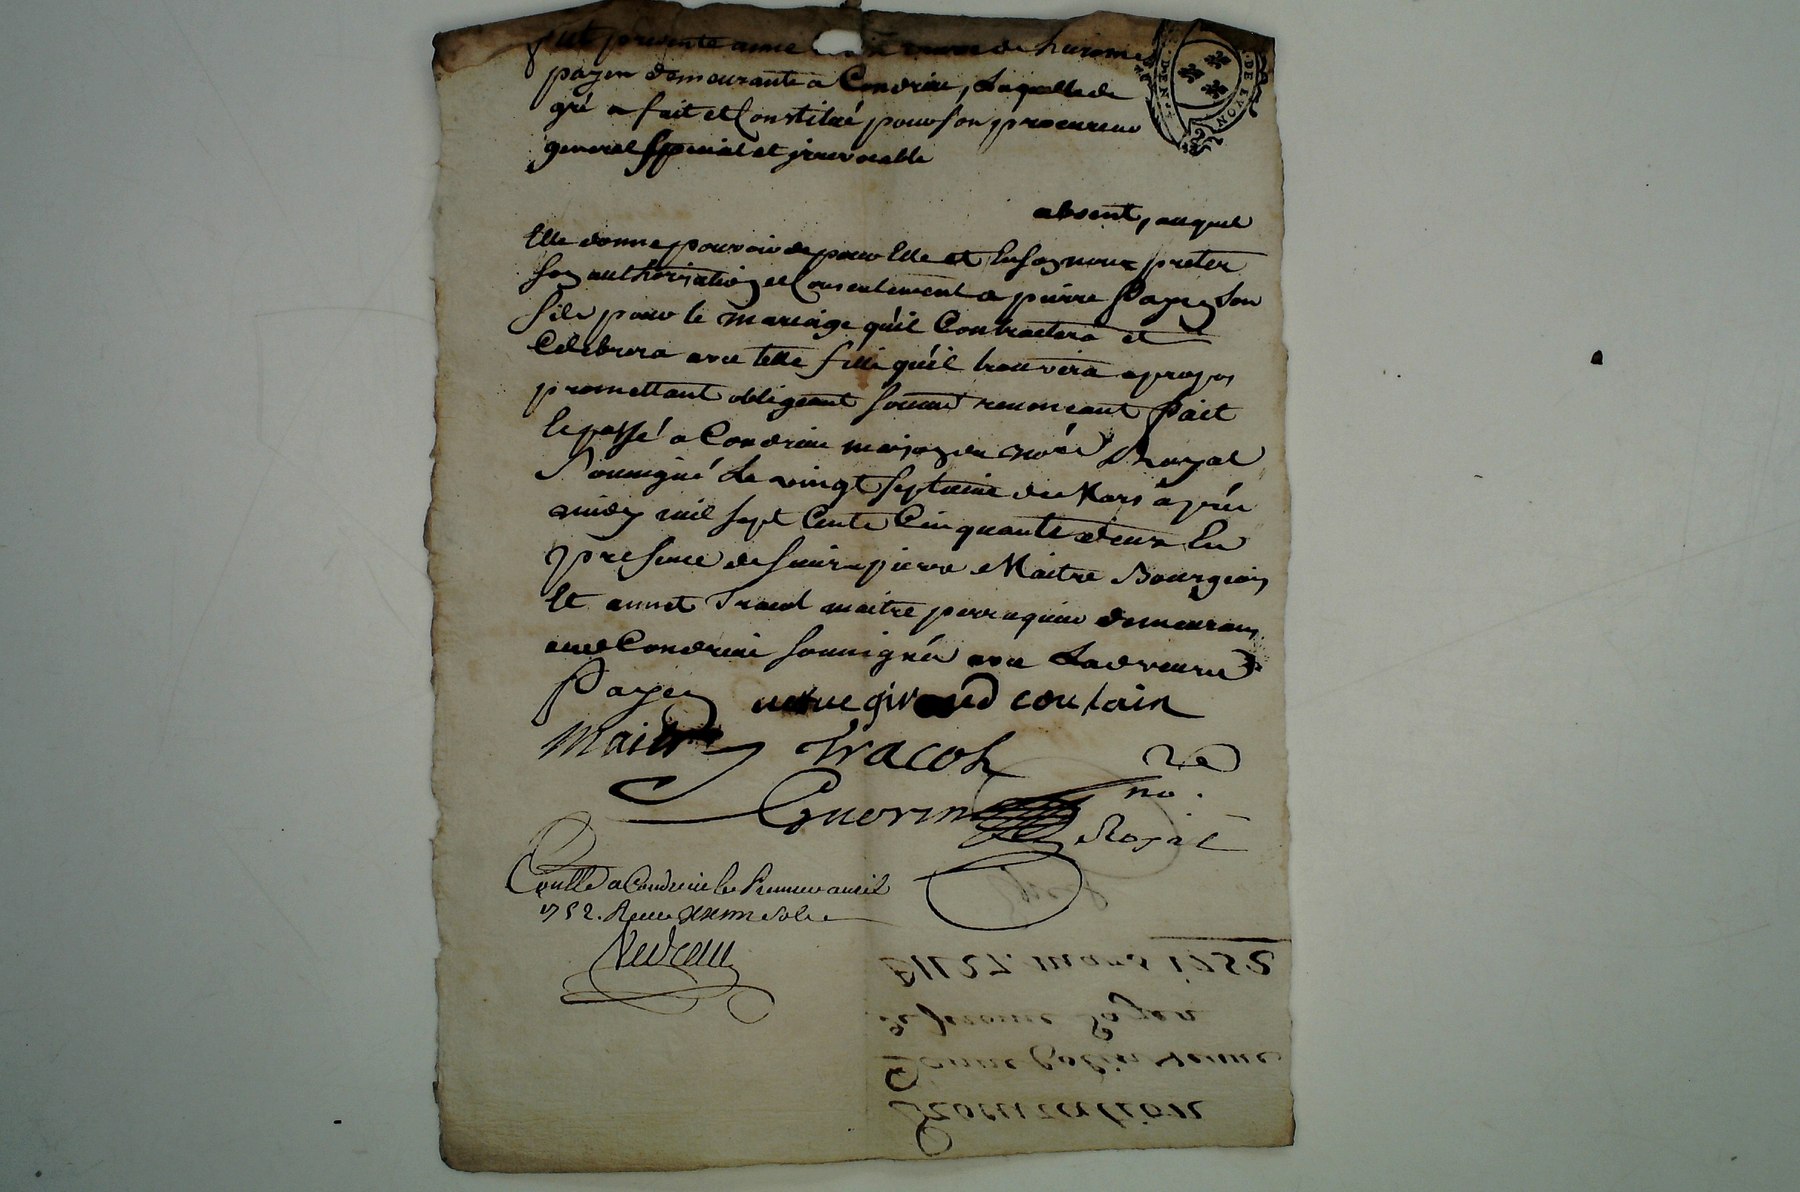 fut presente anne veuve de hierome
payen demeurante a Condrieu, Laquelle de
gré a fait et Constitué pour son procureur
general Special et irrevocable
absent, auquel
Elle donne pouvoir de pour Elle et En son nom preter
son authorisation et Consentement a pierre Payen son
fils pour le mariage qu'il Contractera et
Celebrera avec telle fille qu'il trouvera apropos
promettant obligeant soumet renonceant fait
et passé a Condrieu maison du nore Royal
Soussigné Le vingt septieme de Mars après
midy mil sept Cents Cinquante deux En
presence de sieur pierre Maitre Bourgeois
Et annet Tracol maitre perruquier demeurans
aud Condrieu soussignés avec Lad veuve
Payen
Maitre Tracol
Guerin no.
Royal
Conllé a Condrieu le Premier avril
1752. Receu sols
DE LYON
Du 27. mars 1752
de jerome Payen
veuve
Procuration